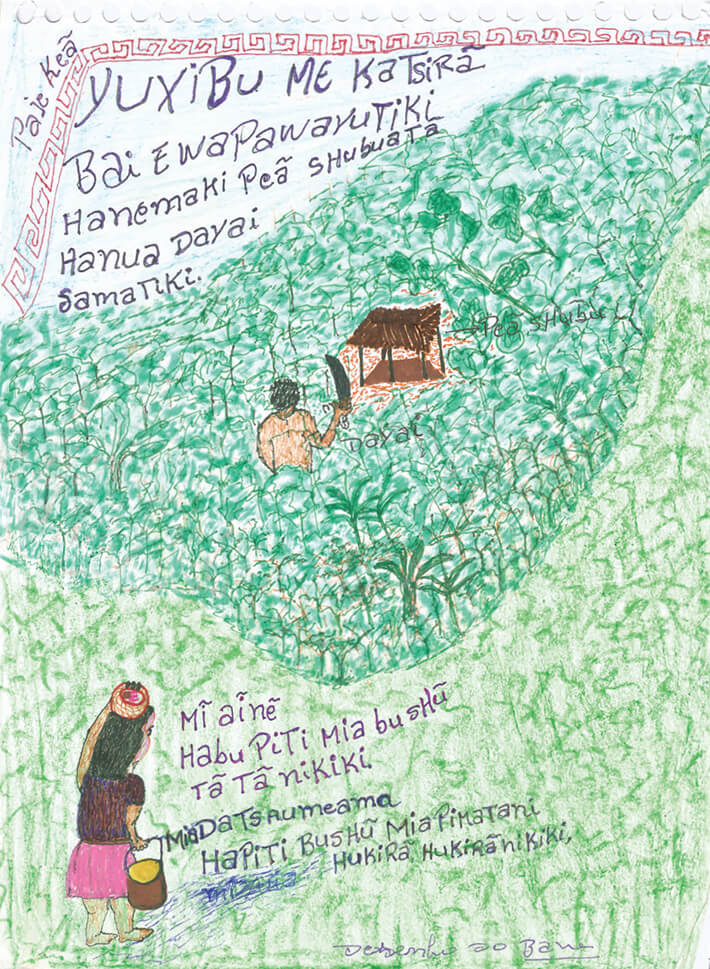 Paje Keã
YUXIBU ME KATSIRÃ
Bai EWAPAWAYUTIKI
HANEMAKI PEÃ SHUBUATÃ
HANUA DAYAI
SAMATIKI.
PEÃ SHUBU
DAYAI
MĨ AĨNẼ
HABU PITI MIA buSHŨ
TÃ TÃ NIKIKI
MIADATSRUMEAMA
HAPITI BUSHŨ MIAPIMATANI
HUKIRÃ HUKIRÃNIKIKI,
Desenho ao Bane